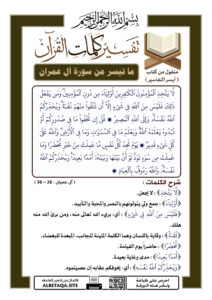 بسم الله الرحمن الرحيم
تفسير كلمات القرآن
منقول من كتاب
( أيسر التفاسير )
ما تيسر من سورة آل عمران
لَّا يَتَّخِذِ الْمُؤْمِنُونَ الْكَافِرِينَ أَوْلِيَاءَ مِن دُونِ الْمُؤْمِنِينَ وَمَن يَفْعَلْ
ذَٰلِكَ فَلَيْسَ مِنَ اللَّهِ فِي شَيْءٍ إِلَّا أَن تَتَّقُوا مِنْهُمْ تُقَاةً وَيُحَذِّرُكُمُ
اللَّهُ نَفْسَهُ وَإِلَى اللَّهِ الْمَصِيرُ قُلْ إِن تُخْفُوا مَا فِي صُدُورِكُمْ أَوْ
تُبْدُوهُ يَعْلَمْهُ اللَّهُ وَيَعْلَمُ مَا فِي السَّمَاوَاتِ وَمَا فِي الْأَرْضِ وَاللَّهُ عَلَىٰ
كُلِّ شَيْءٍ قَدِيرٌ يَوْمَ تَجِدُ كُلُّ نَفْسٍ مَّا عَمِلَتْ مِنْ خَيْرٍ مُّحْضَرًا وَمَا
عَمِلَتْ مِن سُوءٍ تَوَدُّ لَوْ أَنَّ بَيْنَهَا وَبَيْنَهُ أَمَدًا بَعِيدًا وَيُحَذِّرُكُمُ اللَّهُ
نَفْسَهُ وَاللَّهُ رَءُوفٌ بِالْعِبَادِ
شرح الكلمات : ( آل عمران : 28 - 30 )
﴿أولياء﴾ : جمع ولي يتولونهم بالنصر والمحبة والتأييد.
﴿فليس من الله في شيء﴾ : أي: بريء الله تعالى منه، ومن برئ الله منه
هلك.
﴿تقاة﴾ : وقاية باللسان وهي الكلمة الملينة للجانب، المبعدة للبغضاء.
﴿محضرا﴾ : حاضراً يوم القيامة.
﴿أمدا بعيدا﴾ : مدى وغاية بعيدة.
﴿ويحذركم الله نفسه﴾ : أي: يخوفكم عقابه إن عصيتموه.
ALBETAQA.SITE